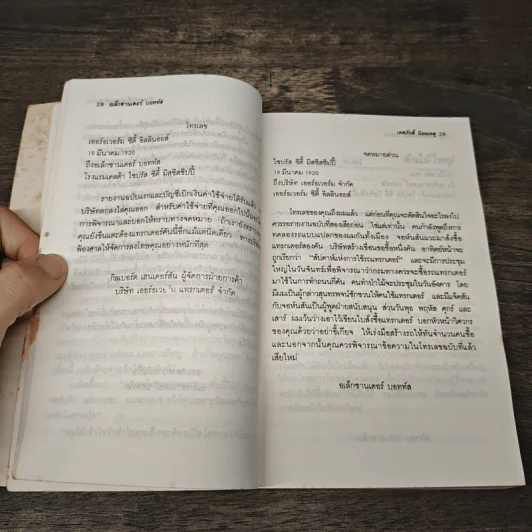 28 อเล็กซานเดอร์ บอททัส
โทรเลข
เออร์ธเวอร์ม ซิตี้ อิลลินอยส์
19 มีนาคม 1920
ถึงอเล็กซานเดอร์ บอททัส
โรงแรมเดลต้า ไซปรัส ซิตี้ มิสซิสซิปปี้
รายงานฉบับแรกและบัญชีเบิกเงินค่าใช้จ่ายได้รับแล้ว
บริษัทตกลงใส่คุณออก สำหรับค่าใช้จ่ายที่คุณออกไปนั้นหน
การพิจารณาและบอกให้ทราบทางจดหมาย ถ้าเรายังรู้
คุณยังขืนแตะต้องแทรกเตอร์คันนี้อีกแม้แต่นิดเดียว ทางบริษั
ฟ้องศาลให้จัดการลงโทษคุณอย่างหนักที่สุด
กิลเบอร์ต เฮนเดอร์สัน ผู้จัดการฝ่ายการค้า
บริษัท เออร์ธเวอร์ม แทรกเตอร์ จำกัด
เทพศักดิ์ 29
จดหมายด่วน
ไซปรัส ซิตี้ มิสซิสซิปปี้
19 มีนาคม 1920
ถึงบริษัท เออร์ธเวอร์ม จำกัด
เออร์ธเวอร์ม ซิตี้ อิลลินอยส์
โทรเลขของคุณถึงผมแล้ว แต่ก่อนที่คุณจะตัดสินใจอะไรลงไป
ควรรายงานฉบับที่สองเสียก่อน ใช่แต่เท่านั้น คนกำลังพูดถึงการ
ทดลองรถแบบแปลกของผมกันทั้งเมือง จอห์นสันแนะมาสั่งซื้อ
แทรกเตอร์สองคัน บริษัทสร้างเขื่อนขอซื้อหนึ่งคัน อาทิตย์หน้าจะ
ถูกเรียกว่า "สัปดาห์แห่งการใช้รถแทรกเตอร์" และจะมีการประชุม
ใหญ่ในวันจันทร์เพื่อพิจารณาว่ากรมทางควรจะซื้อรถแทรกเตอร์
มาใช้ในการทำถนนกี่คัน คนทำป่าไม้จะประชุมในวันอังคาร โดย
มีผมเป็นผู้กล่าวสุนทรพจน์ชักชวนให้คนใช้แทรกเตอร์ และมีแจ๊คสัน
กับจอห์นสันเป็นผู้พูดฝ่ายสนับสนุน ส่วนวันพุธ พฤหัส ศุกร์ และ
เสาร์ ผมเว้นว่างเอาไว้เขียนใบสั่งซื้อแทรกเตอร์ บอกหัวหน้าวิศวกร
ของคุณด้วยว่าอย่าขี้เกียจ ให้เร่งมือสร้างรถให้ทันจำนวนคนซื้อ
และนอกจากนั้นคุณควรพิจารณาข้อความในโทรเลขฉบับที่แล้ว
เสียใหม่
อเล็กซานเดอร์ บอททัส